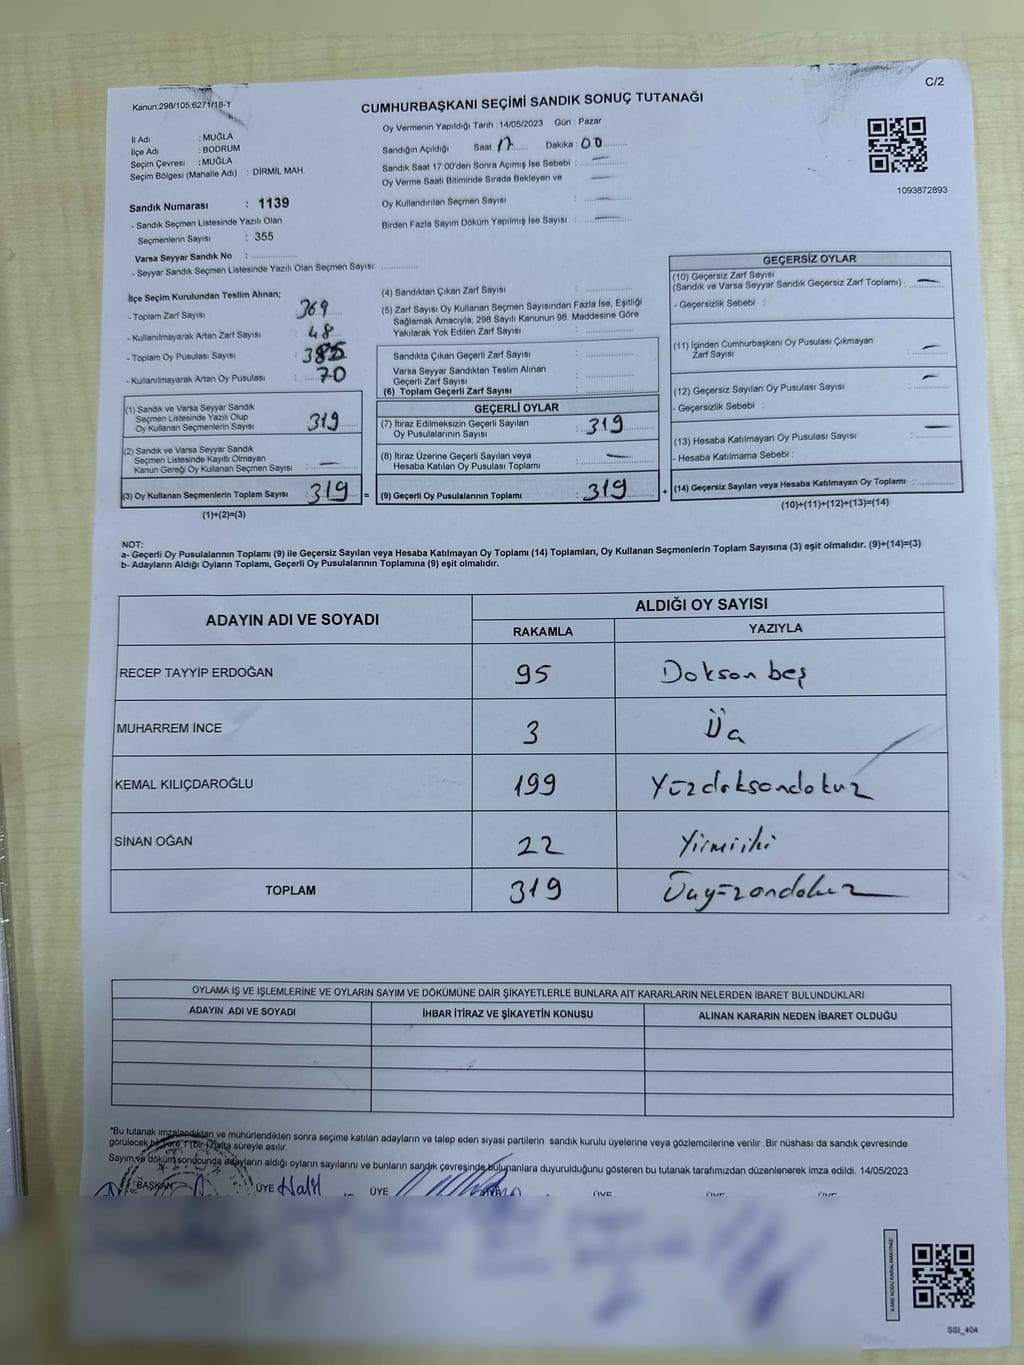 C/2
Kanun,298/105,6271/18-1
CUMHURBAŞKANI SEÇİMİ SANDIK SONUÇ TUTANAĞI
Oy Vermenin Yapıldığı Tarih : 14/05/2023 Gün : Pazar
İl Adı : MUĞLA
İlçe Adı : BODRUM
Seçim Çevresi : MUĞLA
Seçim Bölgesi (Mahalle Adı) : DİRMİL MAH.
Sandığın Açıldığı Saat : 17 Dakika : 00
Sandık Saat 17:00'den Sonra Açımış İse Sebebi : —
Oy Verme Saati Bitiminde Sırada Bekleyen ve —
Oy Kullandırılan Seçmen Sayısı : —
Birden Fazla Sayım Döküm Yapılmış İse Sayısı : —
1093872893
Sandık Numarası : 1139
- Sandık Seçmen Listesinde Yazılı Olan
Seçmenlerin Sayısı : 355
Varsa Seyyar Sandık No :
- Seyyar Sandık Seçmen Listesinde Yazılı Olan Seçmen Sayısı:
İlçe Seçim Kurulundan Teslim Alınan;
- Toplam Zarf Sayısı : 369
- Kullanılmayarak Artan Zarf Sayısı : 48
- Toplam Oy Pusulası Sayısı : 385
- Kullanılmayarak Artan Oy Pusulası : 70
(1) Sandık ve Varsa Seyyar Sandık
Seçmen Listesinde Yazılı Olup
Oy Kullanan Seçmenlerin Sayısı : 319
(2) Sandık ve Varsa Seyyar Sandık
Seçmen Listesinde Kayıtlı Olmayan
Kanun Gereği Oy Kullanan Seçmen Sayısı : —
(3) Oy Kullanan Seçmenlerin Toplam Sayısı : 319 =
(1)+(2)=(3)
(4) Sandıktan Çıkan Zarf Sayısı :
(5) Zarf Sayısı Oy Kullanan Seçmen Sayısından Fazla İse, Eşitliği
Sağlamak Amacıyla; 298 Sayılı Kanunun 98. Maddesine Göre
Yakılarak Yok Edilen Zarf Sayısı :
Sandıkta Çıkan Geçerli Zarf Sayısı :
Varsa Seyyar Sandıktan Teslim Alınan
Geçerli Zarf Sayısı :
(6) Toplam Geçerli Zarf Sayısı :
GEÇERLİ OYLAR
(7) İtiraz Edilmeksizin Geçerli Sayılan
Oy Pusulalarının Sayısı : 319
(8) İtiraz Üzerine Geçerli Sayılan veya
Hesaba Katılan Oy Pusulası Toplamı : —
(9) Geçerli Oy Pusulalarının Toplamı : 319 +
GEÇERSİZ OYLAR
(10) Geçersiz Zarf Sayısı
(Sandık ve Varsa Seyyar Sandık Geçersiz Zarf Toplamı) : —
- Geçersizlik Sebebi :
(11) İçinden Cumhurbaşkanı Oy Pusulası Çıkmayan
Zarf Sayısı : —
(12) Geçersiz Sayılan Oy Pusulası Sayısı : —
- Geçersizlik Sebebi :
(13) Hesaba Katılmayan Oy Pusulası Sayısı : —
- Hesaba Katılmama Sebebi :
(14) Geçersiz Sayılan veya Hesaba Katılmayan Oy Toplamı :
(10)+(11)+(12)+(13)=(14)
NOT:
a- Geçerli Oy Pusulalarının Toplamı (9) ile Geçersiz Sayılan veya Hesaba Katılmayan Oy Toplamı (14) Toplamları, Oy Kullanan Seçmenlerin Toplam Sayısına (3) eşit olmalıdır. (9)+(14)=(3)
b- Adayların Aldığı Oyların Toplamı, Geçerli Oy Pusulalarının Toplamına (9) eşit olmalıdır.
ADAYIN ADI VE SOYADI ALDIĞI OY SAYISI
RAKAMLA YAZIYLA
RECEP TAYYİP ERDOĞAN 95 Doksan beş
MUHARREM İNCE 3 Üç
KEMAL KILIÇDAROĞLU 199 Yüzdoksandokuz
SİNAN OĞAN 22 Yirmiiki
TOPLAM 319 Üçyüzondokuz
OYLAMA İŞ VE İŞLEMLERİNE VE OYLARIN SAYIM VE DÖKÜMÜNE DAİR ŞİKAYETLERLE BUNLARA AİT KARARLARIN NELERDEN İBARET BULUNDUKLARI
ADAYIN ADI VE SOYADI İHBAR İTİRAZ VE ŞİKAYETİN KONUSU ALINAN KARARIN NEDEN İBARET OLDUĞU
*Bu tutanak imzalandıktan ve mühürlendikten sonra seçime katılan adayların ve talep eden siyasi partilerin sandık kurulu üyelerine veya gözlemcilerine verilir .Bir nüshası da sandık çevresinde
görülecek bir yere 1 (Bir ) hafta süreyle asılır.
Sayım ve döküm sonucunda adayların aldığı oyların sayılarını ve bunların sandık çevresinde bulunanlara duyurulduğunu gösteren bu tutanak tarafımızdan düzenlenerek imza edildi. 14/05/2023
BAŞKAN ÜYE Halil ÜYE ÜYE ÜYE ÜYE ÜYE
KARE KODU KARALAMAYINIZ!
SSI_404